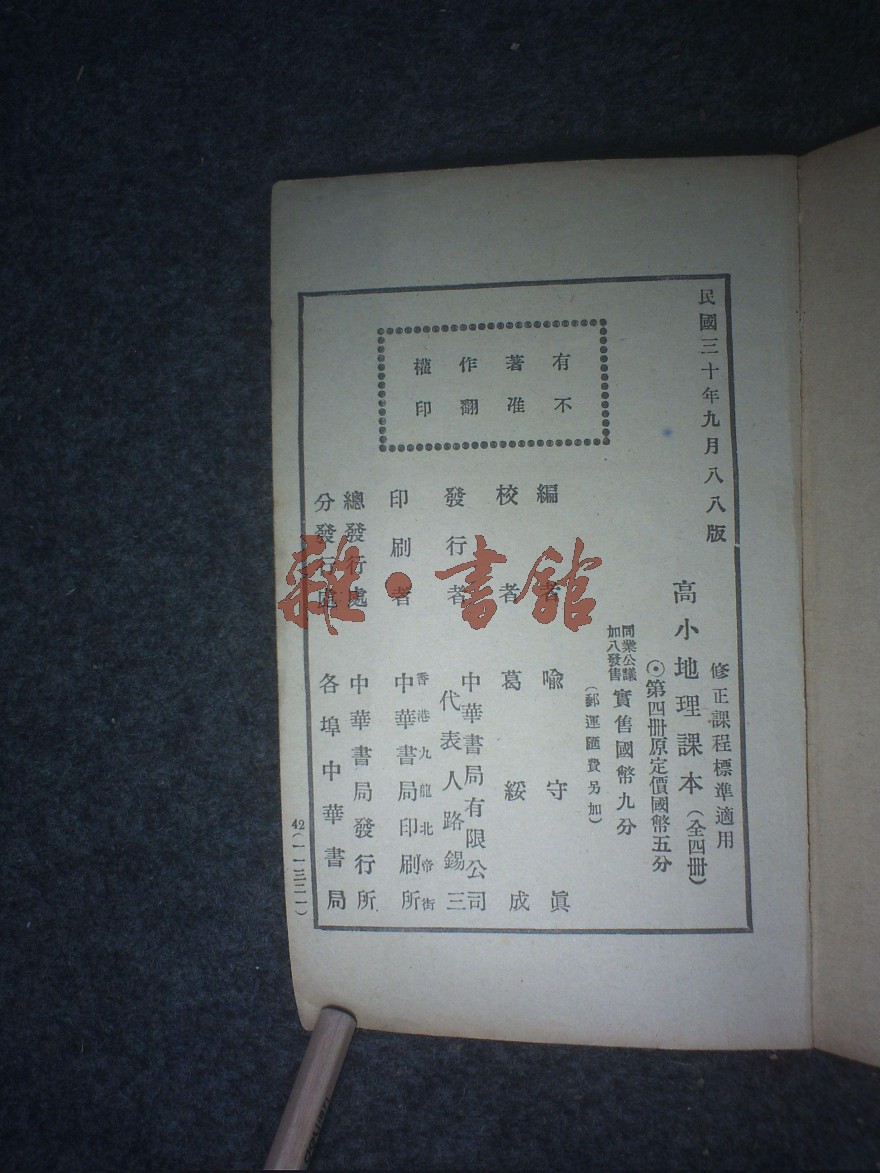 民國三十年九月八八版
修正課程標準適用
高小地理課本（全四冊）
⊙第四冊原定價國幣五分
同業公議
加八發售
實售國幣九分
（郵運匯費另加）
有不
著准
作翻
權印
編者 喩守眞
校者 葛綏成
發行者 中華書局有限公司
代表人路錫三
印刷者 香港九龍北帝街
中華書局印刷所
總發行處 中華書局發行所
分發行處 各埠中華書局
42（一一三二一）
雜·書館